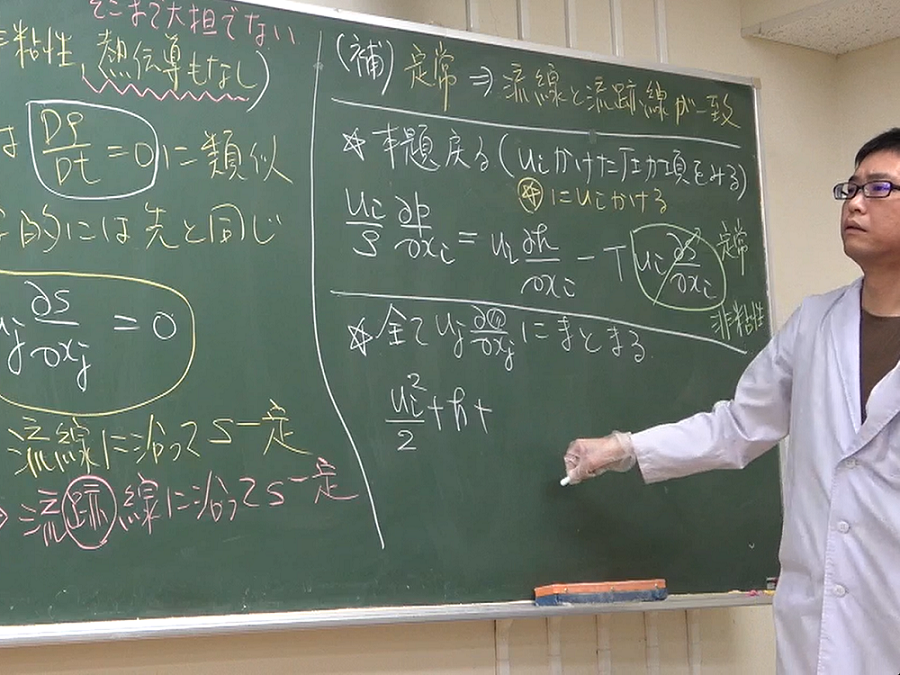 そこまで大胆でない
非粘性, 熱伝導もなし)
は Dρ/Dt = 0 に類似
的には先と同じ
uj ∂s/∂xj = 0
流線に沿ってs一定
⇒ 流跡線に沿ってs一定
(補) 定常 ⇒ 流線と流跡線が一致
☆ 本題戻る (uiかけた圧力項をみる)
☆ にuiかける
ui/ρ ∂p/∂xi = ui ∂h/∂xi − T ui ∂s/∂xi
定常
非粘性
☆ 全て uj ∂/∂xj にまとまる
ui²/2 + h +